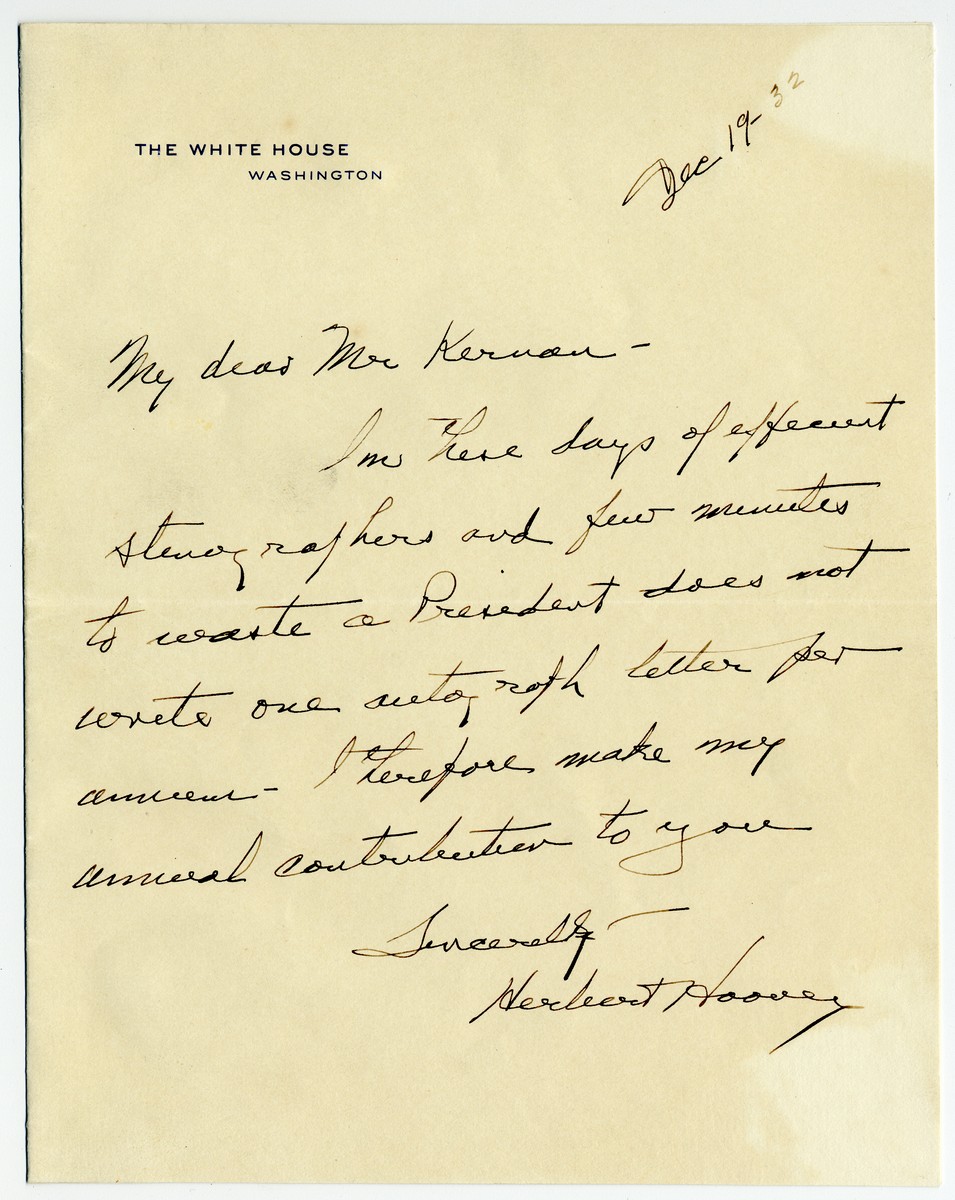 THE WHITE HOUSE
WASHINGTON
Dec 19-32
My dear Mr Kernan -
In these days of efficient
stenographers and few minutes
to waste a President does not
write one autograph letter per
annum - I therefore make my
annual contribution to you
Sincerely
Herbert Hoover